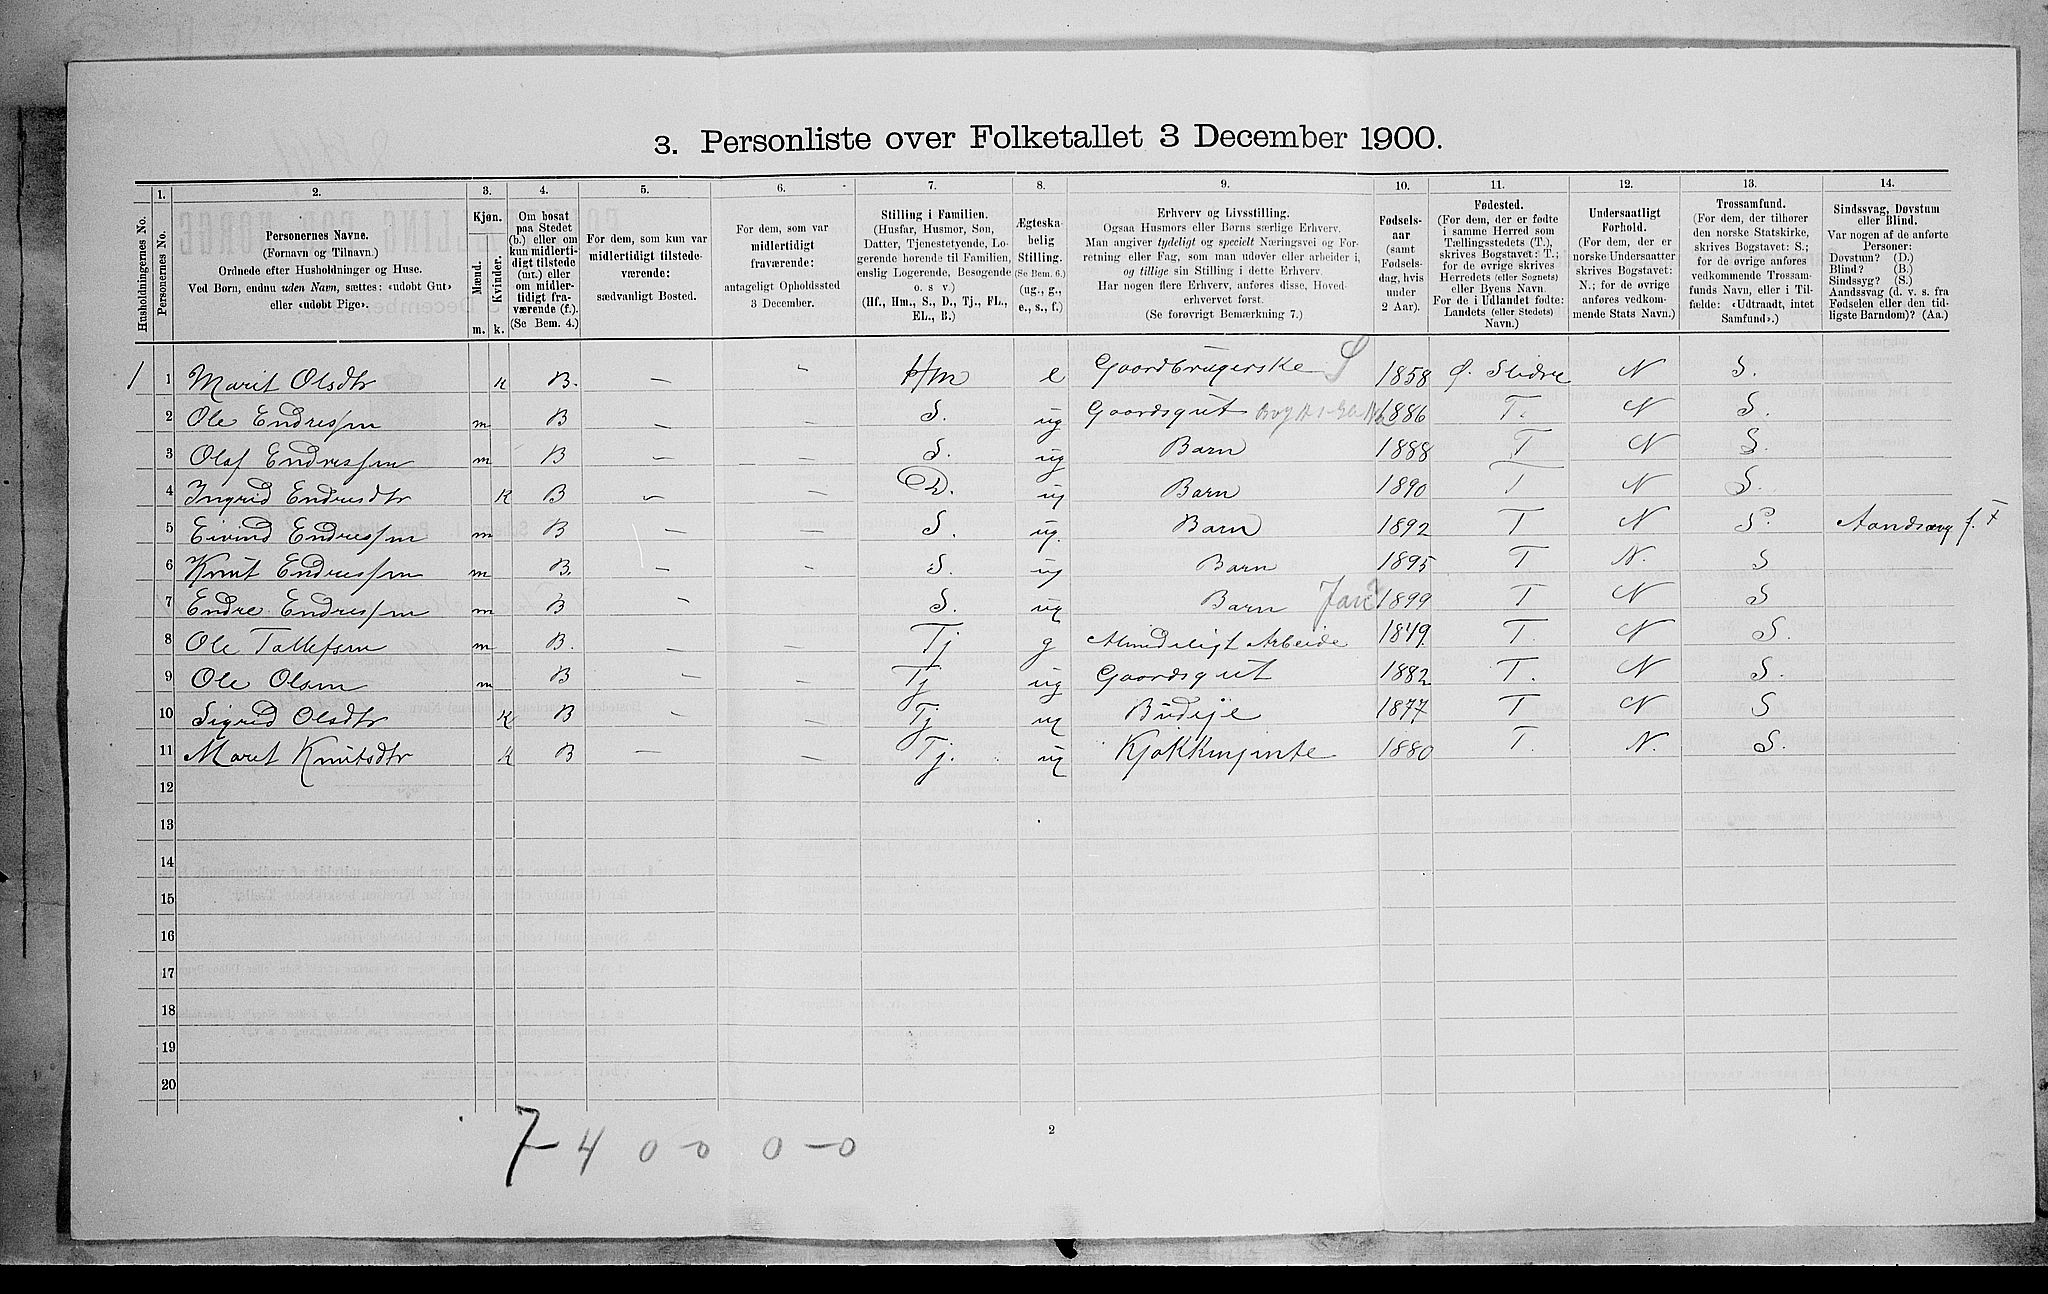 3. Personliste over Folketallet 3 December 1900.
1. 2. 3. 4. 5. 6. 7. 8. 9. 10. 11. 12. 13. 14.
Husholdningernes No.
Personernes No.
Personernes Navne.
(Fornavn og Tilnavn.)
Ordnede efter Husholdninger og Huse.
Ved Børn, endnu uden Navn, sættes: «udøbt Gut»
eller «udøbt Pige».
Kjøn.
Mænd.
Kvinder.
m. k.
Om bosat
paa Stedet
(b.) eller om
kun midlerti-
digt tilstede
(mt.) eller
om midler-
tidigt fra-
værende (f.).
(Se Bem. 4.)
For dem, som kun var
midlertidigt tilstede-
værende:
sædvanligt Bosted.
For dem, som var
midlertidigt
fraværende:
antageligt Opholdssted
3 December.
Stilling i Familien.
(Husfar, Husmor, Søn,
Datter, Tjenestetyende, Lo-
gerende hørende til Familien,
enslig Logerende, Besøgende
o. s v.)
(Hf., Hm., S., D., Tj., FL.,
EL., B.)
Ægteska-
belig
Stilling.
(Se Bem. 6.)
(ug., g.,
e., s., f.)
Erhverv og Livsstilling.
Ogsaa Husmors eller Børns særlige Erhverv.
Man angiver tydeligt og specielt Næringsvei og For-
retning eller Fag, som man udøver eller arbeider i,
og tillige sin Stilling i dette Erhverv.
Har nogen flere Erhverv, anføres disse, Hoved-
erhvervet først.
(Se forøvrigt Bemærkning 7.)
Fødsels-
aar
(samt
Fødsels-
dag, hvis
under
2 Aar).
Fødested.
(For dem, der er fødte
i samme Herred som
Tællingsstedets (T.),
skrives Bogstavet: T.;
for de øvrige skrives
Herredets (eller Sognets)
eller Byens Navn.
For de i Udlandet fødte:
Landets (eller Stedets)
Navn.)
Undersaatligt
Forhold.
(For dem, der er
norske Undersaatter
skrives Bogstavet:
N.; for de øvrige
anføres vedkom-
mende Stats Navn.)
Trossamfund.
(For dem, der tilhører
den norske Statskirke,
skrives Bogstavet: S.;
for de øvrige anføres
vedkommende Trossam-
funds Navn, eller i Til-
fælde: «Udtraadt, intet
Samfund».)
Sindssvag, Døvstum
eller Blind.
Var nogen af de anførte
Personer:
Døvstum? (D.)
Blind? (B.)
Sindssyg? (S.)
Aandssvag (d. v. s. fra
Fødselen eller den tid-
ligste Barndom)? (Aa.)
1 1 Marit Olsdtr k B. – – Hm e Gaardbrugerske S 1858 Ø. Slidre N S.
2 Ole Endressøn m B – – S. ug Gaardsgut 1886 T. N S.
3 Olaf Endressøn m B – – S. ug Barn 1888 T N S.
4 Ingrid Endresdtr k B – – D. ug Barn 1890 T N S.
5 Eivind Endressøn m B – – S. ug. Barn 1892 T N S. Aandsvag f. F
6 Knut Endressøn m B. – – S. ug Barn 1895 T N. S
7 Endre Endressøn m B – – S. ug Barn 1899 T N S
8 Ole Tollefsøn m B. – – Tj g Almindeligt Arbeide 1849 T. N S.
9 Ole Olsøn m B – – Tj ug Gaardsgut 1882 T. N S.
10 Sigrid Olsdtr k B – – Tj ug Budeje 1877 T N S
11 Marit Knutsdtr k B – – Tj. ug Kjøkkenjente 1880 T. N. S.
12
13
14
15
16
17
18
19
20
2
7-4 0-0 0-0